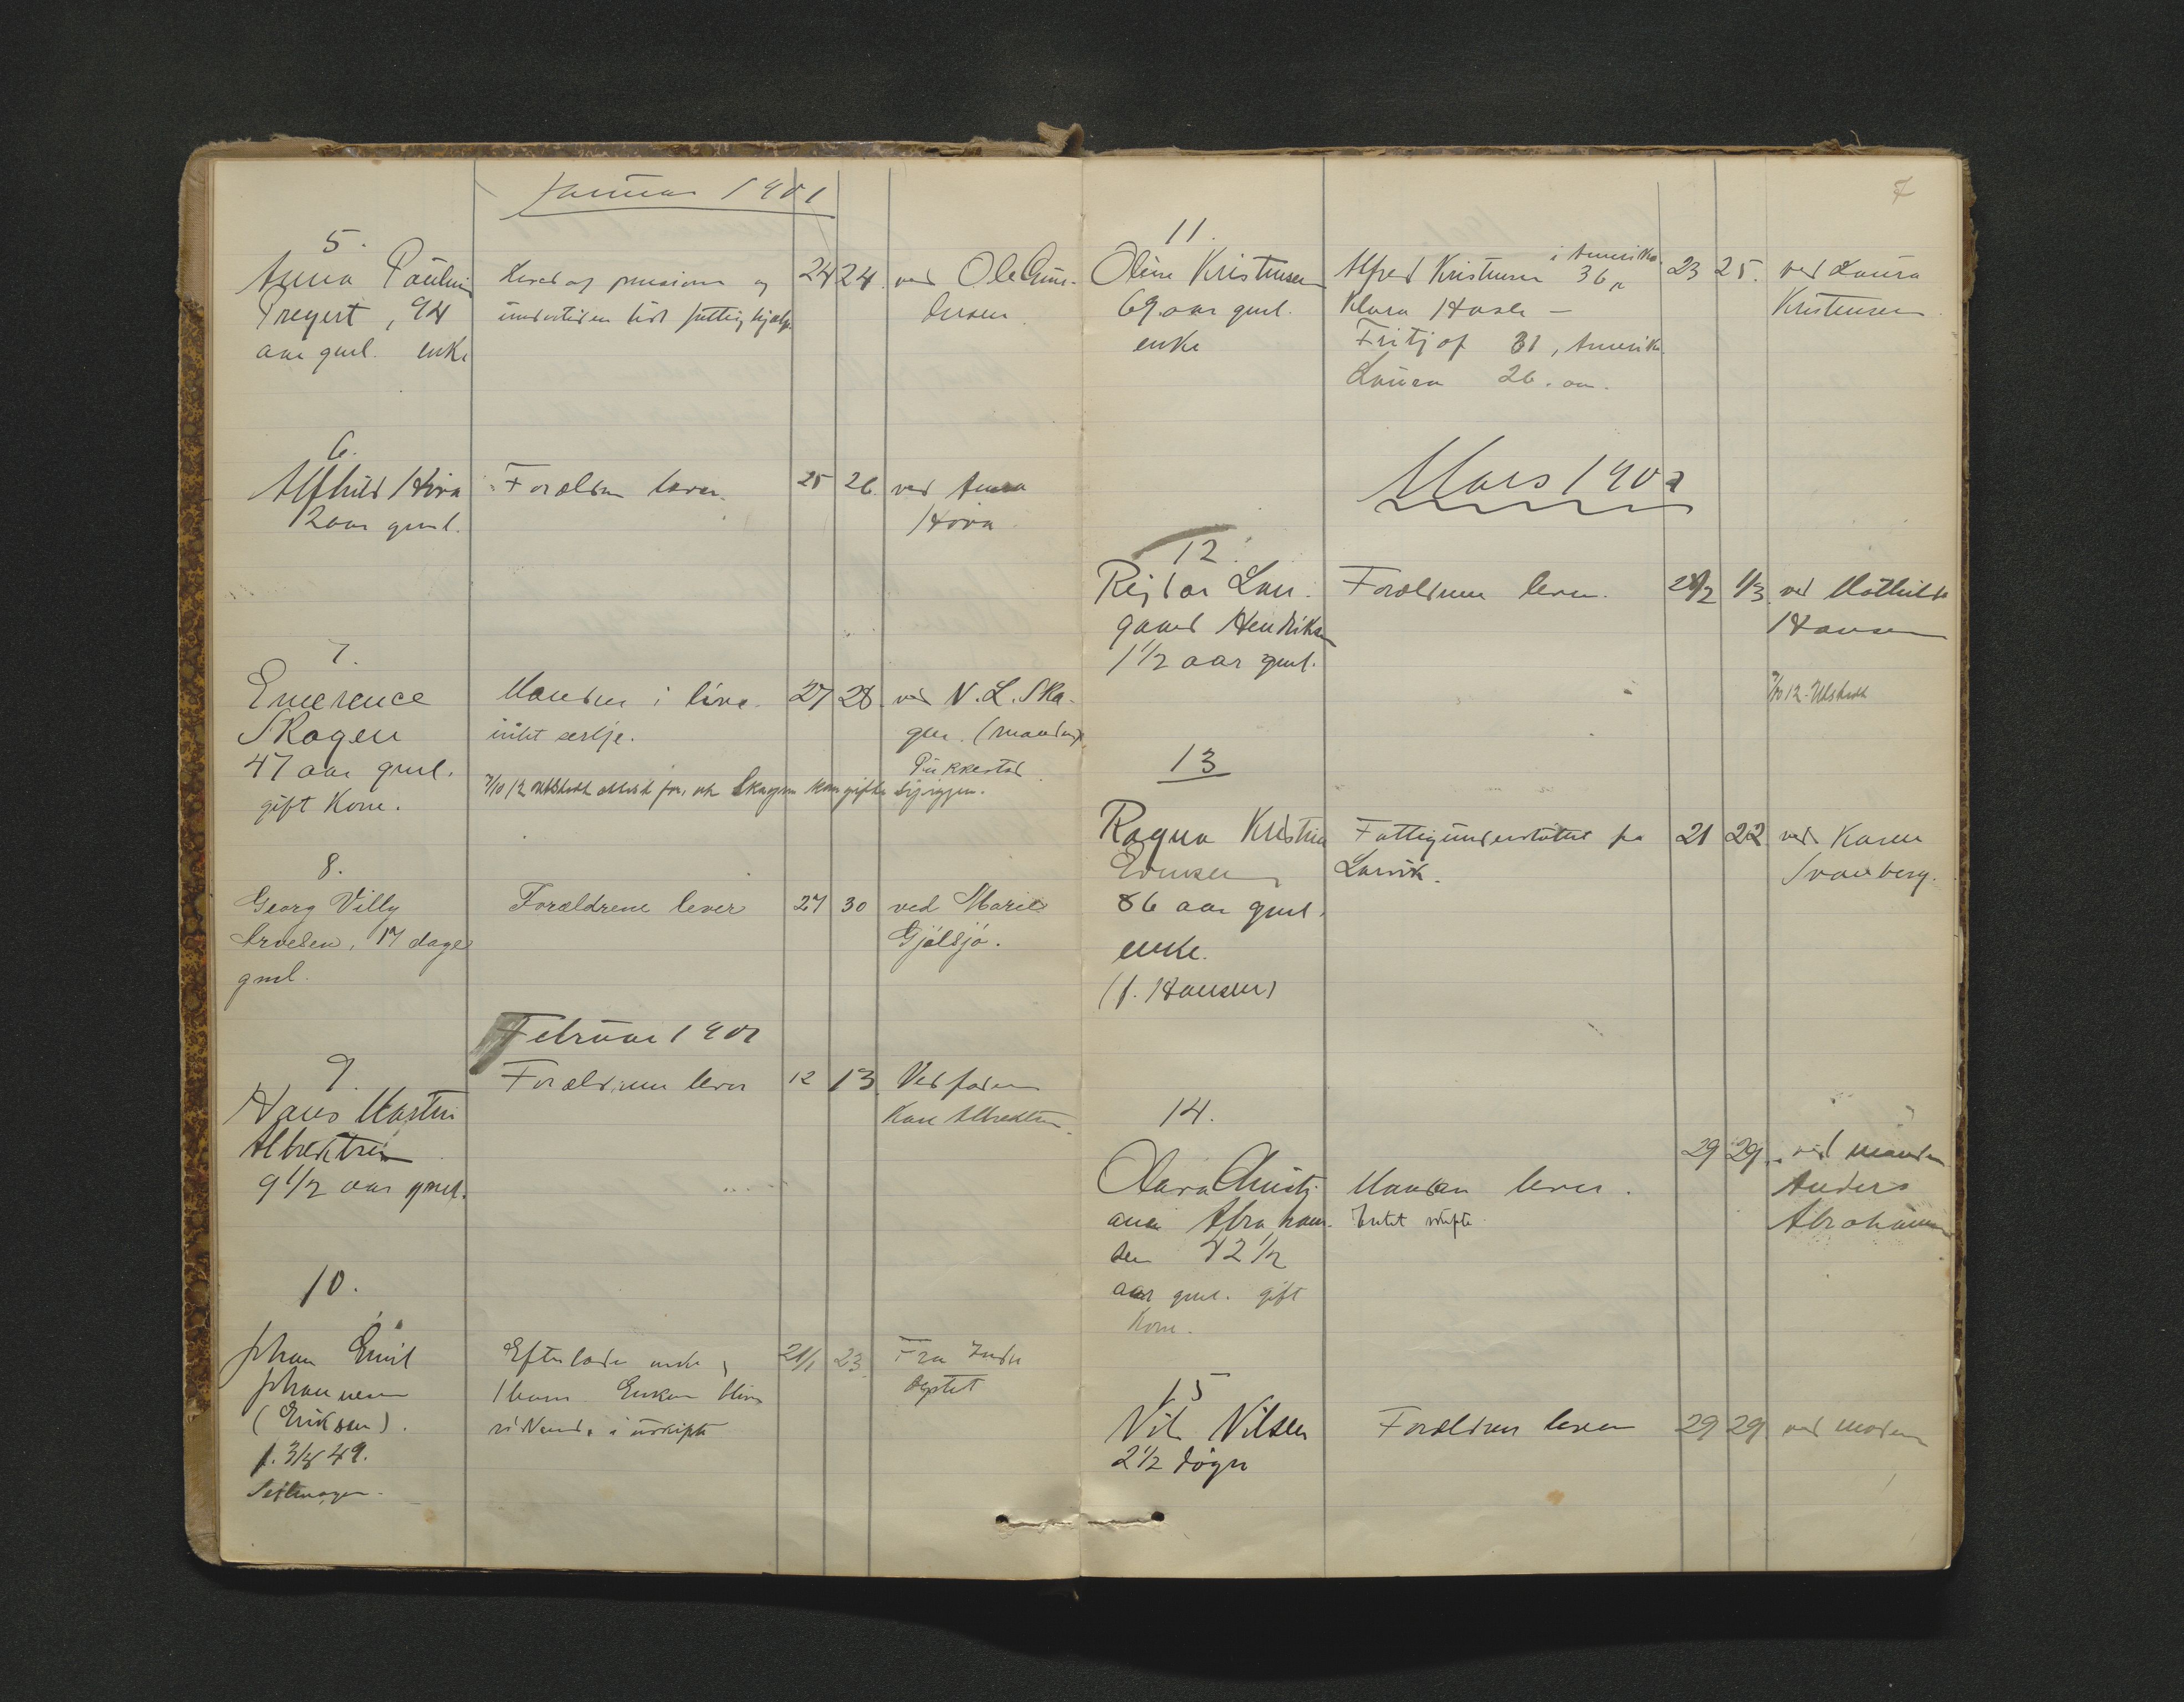 Januar 1901
5.
Anna Pauline
Pregert, 94
aar gml. enke
Levet af pension og
undertiden lidt fattighjælp.
24 24. ved Ole Gun-
dersen
6.
Alfhild Hova
2 aar gml.
Forældre lever.
25 26. ved Anna
Hova
7.
Emerence
Skagen
47 aar gml.
gift Kone.
Manden i live.
intet serlje.
27 28. ved N. L. Ska-
gen. (manden)
Pukkestad.
7/10 12 utstedt attest for, at Skagen kan gifte sig igjen.
8.
Georg Villy
Arvesen, 17 dage
gml.
Forældrene lever
27 30 ved Marie
Gjølsjø.
Februar 1901
9.
Hans Martin
Albrektsen
9 1/2 aar gml.
Forældrene lever
12 13. Ved faderen
Karl Albrektsen.
10.
Johan Emil
Johannesen
(Eriksen).
f. 3/8 49.
Efterlader enke &
1 barn. Enken bliver
i uskifte
21/1 23. Fra
11.
Oline Kristensen
69 aar gml.
enke
Alfred Kristensen i Amerika 36
Klara Hasle —
Fritjof 31, Amerika
Laura 26. aar.
23 25. ved Laura
Kristensen
7
Mars 1901
12.
Rejdar Lau-
gaard Hendriksen
1 1/2 aar gml.
Forældrene lever.
28/2 1/3. ved Mathilde
Hansen
7/10 12 - Utstedt
13
Ragna Kristine
Evensen
86 aar gml.
enke.
(f. Hansen)
Fattigunderstøttet fra
Larvik.
21 22 ved Karen
Svanberg.
14.
Clara Christi-
ane Abraham-
sen 42 1/2
aar gml. gift
Kone.
Manden lever.
Intet skifte.
29 29. ved manden
Anders
Abrahamsen
15
Nils Nilsen
2 1/2 døgn
Forældren lever
29 29. ved moderen